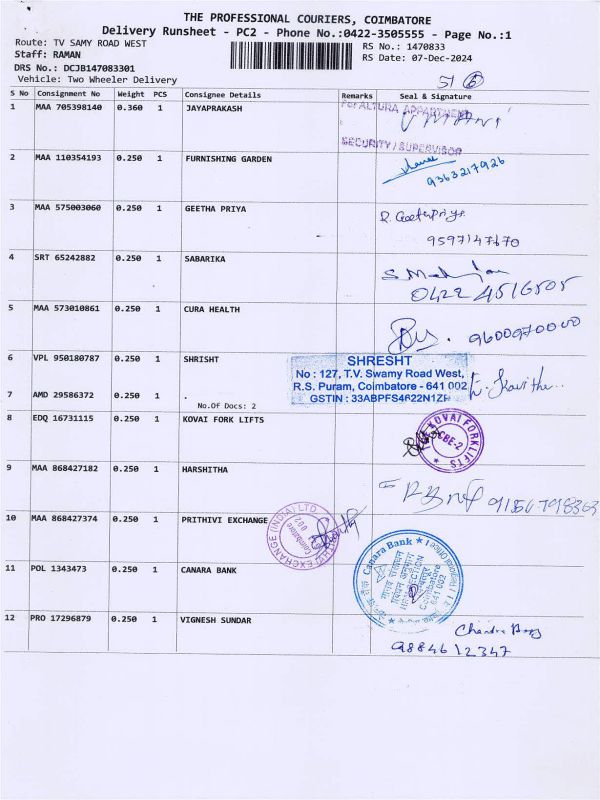 THE PROFESSIONAL COURIERS, COIMBATORE
Delivery Runsheet - PC2 - Phone No.:0422-3505555 - Page No.:1
Route: TV SAMY ROAD WEST
RS No.: 1470833
Staff: RAMAN
RS Date: 07-Dec-2024
DRS No.: DCJB147083301
Vehicle: Two Wheeler Delivery
S No Consignment No Weight PCS Consignee Details Remarks Seal & Signature
1 MAA 705398140 0.360 1 JAYAPRAKASH
For ALTURA APPARTMENT
SECURITY/SUPERVISOR
2 MAA 110354193 0.250 1 FURNISHING GARDEN
9363217926
3 MAA 575003060 0.250 1 GEETHA PRIYA
9597147670
4 SRT 65242882 0.250 1 SABARIKA
0422 4516505
5 MAA 573010861 0.250 1 CURA HEALTH
9600970000
6 VPL 950180787 0.250 1 SHRISHT
SHRESHT
No : 127, T.V. Swamy Road West,
R.S. Puram, Coimbatore - 641 002
GSTIN : 33ABPFS4622N1ZP
7 AMD 29586372 0.250 1 .
No.Of Docs: 2
8 EDQ 16731115 0.250 1 KOVAI FORK LIFTS
KOVAI FORKLIFTS
CBE-2
9 MAA 868427182 0.250 1 HARSHITHA
10 MAA 868427374 0.250 1 PRITHIVI EXCHANGE
EXCHANGE (INDIA) LTD
Coimbatore
11 POL 1343473 0.250 1 CANARA BANK
Canara Bank
Coimbatore
641 002
12 PRO 17296879 0.250 1 VIGNESH SUNDAR
98846 12347